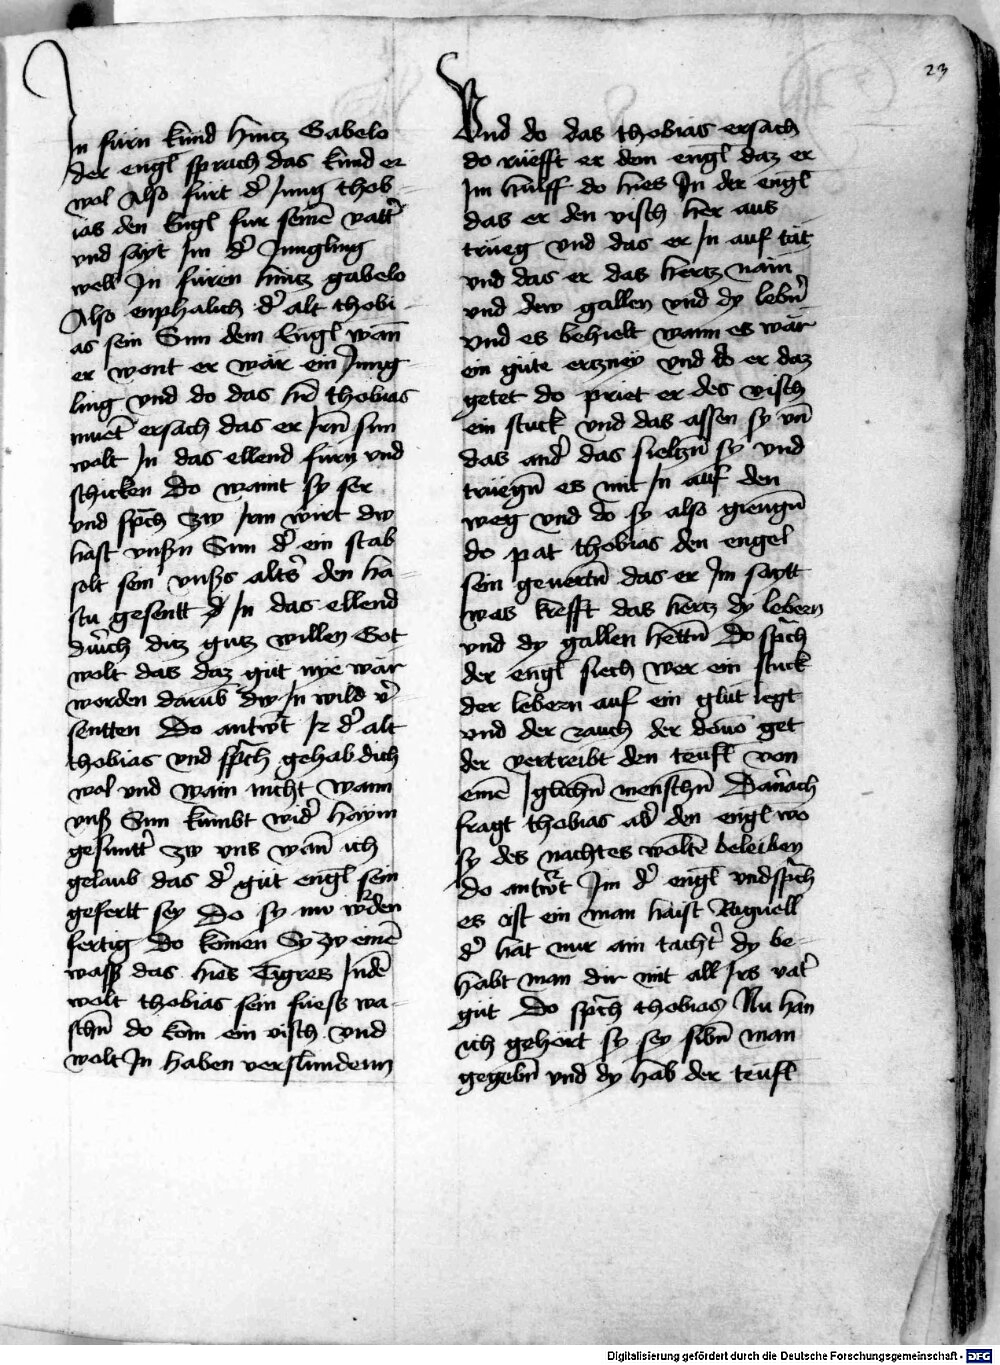 23
In fürn künd hincz Gabelo
der engl sprach das kund er
wol Also fürt d' Jung thob-
ias den Engl fur seinē vatt'
vnd sayt Im d' Jungling
well In füren hincz gabelo
Also enphalich d' alt thobi-
as sein Sun dem Engl wan̄
er wont er wär ein Jung-
ling vnd do das h're thobias
muet' ersach das er Irn̄ sun
wolt In das ellend fürn vnd
schicken Do waint sy ser
vnd sp̄ch zw Irm wirt dw
hast vnßn Sun d' ein stab
solt sein vnßs alt's den ha-
stu gesentt In das ellend
durch diz gutz willen Got
wolt das daz gut nye wär
worden darub dw In wild v'
sentten Do antw't Ir d' alt
thobias vnd sp̄ch gehab dich
wol vnd wain nicht wann
vnß Sun kumbt wid' haym
gesuntt' zw vns wan̄ ich
gelaub das d' gut engl sein
gefertt sey Do sy nw w'den
fertig Do komen Sy zw einē
wass das hies Tigres Indē
wolt thobias sein füess wa-
schn̄ do kom ein visch vnd
wolt In haben verslundenn
Vnd do das thobias ersach
do rüefft er dem engl daz er
Im hulff do hies In der engl
das er den visch her aus
trüeg vnd das er In auf tät
vnd das er das hertz näm
vnd dew gallen vnd dy leb'n
vnd es behielt wann es wär
ein güte erczney vnd do er daz
getet do priet er des visch
ein stuck vnd das assen sy vn̄
das and' das sielczn̄ sy vnd
trüegn̄ es mit In auf den
weg vnd do sy also giengn̄
do pat thobias den engel
sein geuertn̄ das er Im saytt
was krefft das hertz dy lebern
vnd dy gallen hettn̄ Do sp̄ch
der engl siech wer ein stuck
der lebern auf ein glut legt
vnd der rauch der douō get
der vertreibt den teufl von
einē Iglichn̄ menschn̄ Darnach
fragt thobias ab' den engl wo
sy des nachtes woltē beleiben
do antw't Im d' engl vnd sp̄ch
es ist ein man haist Raguell
d' hat nur ain tacht' dy be-
habt man dir mit all Irs vat'
gut Do sp̄ch thobias Nu han
ich gehört sy sey sibn̄ man
gegebn̄ vnd dy hab der teufl
Digitalisierung gefördert durch die Deutsche Forschungsgemeinschaft - DFG